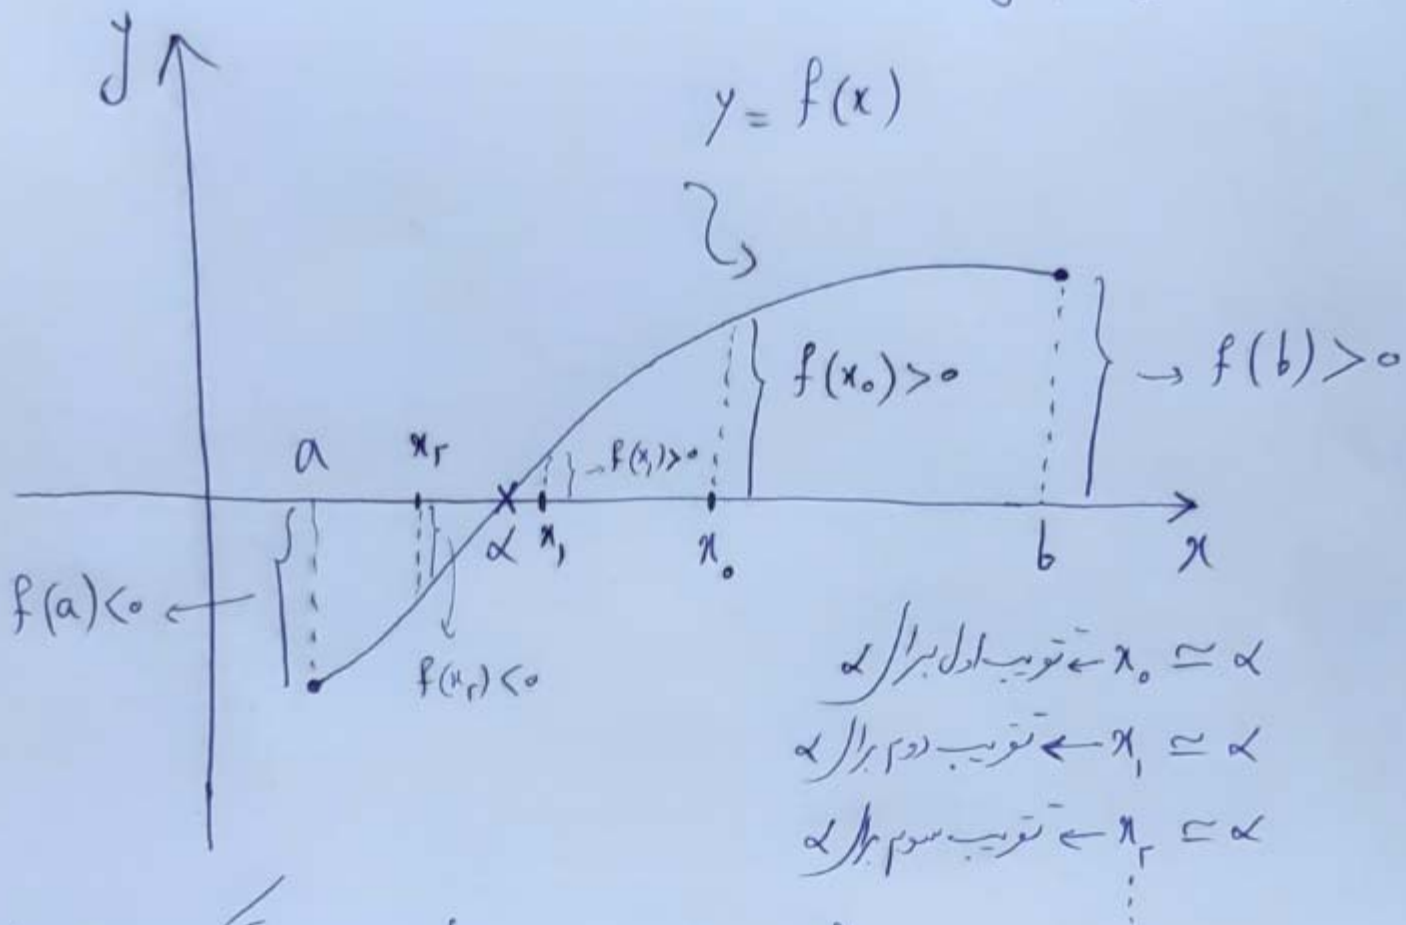 y
y = f(x)
f(x₀)>0
→ f(b)>0
a
x۲
→ f(x₁)>0
α
x₁
x₀
b
x
f(a)<0 ←
f(x۲)<0
x₀ ≃ α ← تقریب اول برای α
x₁ ≃ α ← تقریب دوم برای α
x۲ ≃ α ← تقریب سوم برای α